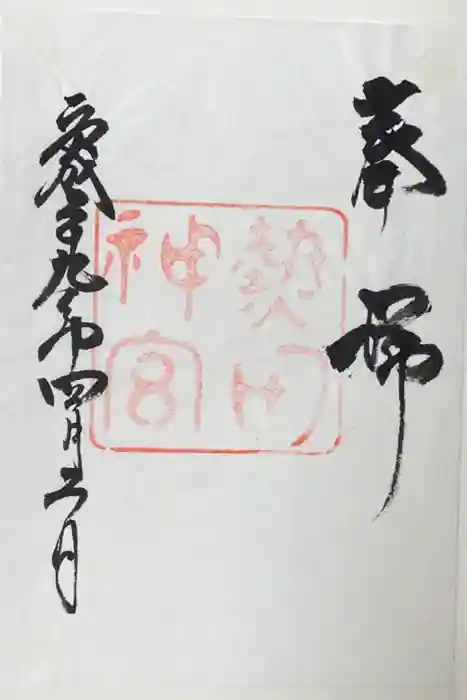 奉拝
熱田
神宮
平成二十九年四月二日